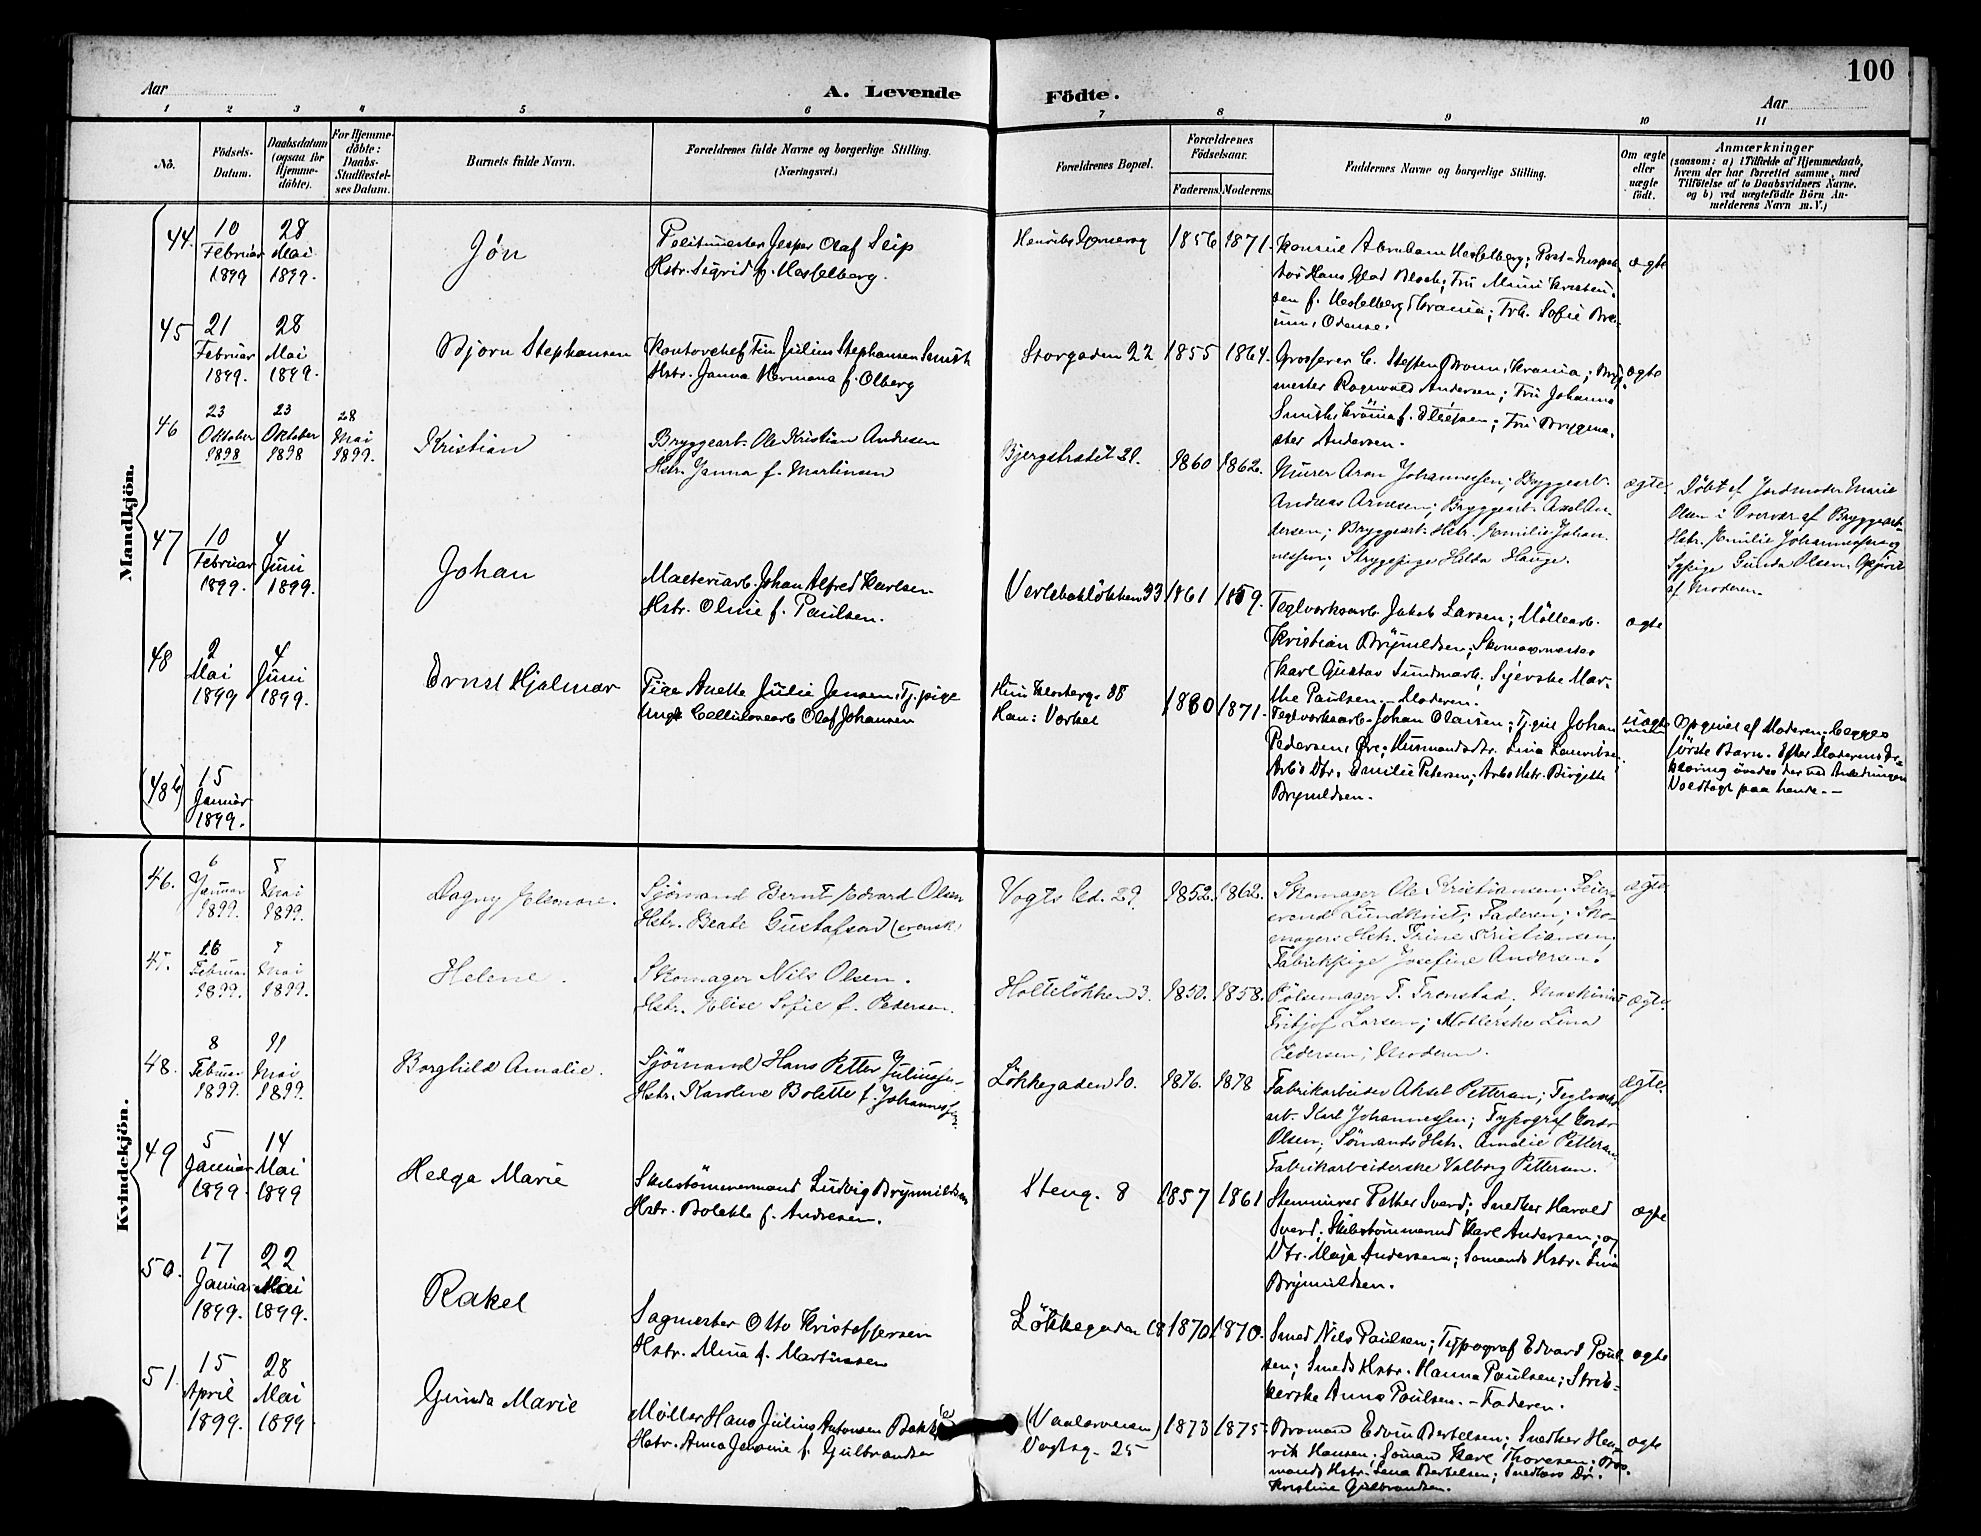 100
Aar
A. Levende Födte.
Aar
1 2 3 4 5 6 7 8 9 10 11
No.
Födsels-Datum.
Daabsdatum (ogsaa for Hjemme-döbte).
For Hjemme-döbte: Daabs-Stadfæstel-ses Datum.
Barnets fulde Navn.
Forældrenes fulde Navne og borgerlige Stilling.
(Næringsvei.)
Forældrenes Bopæl.
Forældrenes Födselsaar.
Faderens. Moderens.
Faddernes Navne og borgerlige Stilling.
Om ægte eller uægte födt.
Anmærkninger
(saasom: a) i Tilfælde af Hjemmedaab,
hvem der har forrettet samme, med
Tilföielse af to Daabsvidners Navne.
og b) ved uægtefödte Börn An-
melderens Navn m. V.)
Mandkjön.
44. 10 Februar 1899 28 Mai 1899.
Jön
Politimester Jesper Olaf Seip
Hstr. Sigrid f. Hesselberg.
1856 1871.
Konsul Abraham Hesselberg; Post-Inspek-
tør Hans Glad Bloch; Fru Mimi Kristen-
sen f. Hesselberg, Krania; Frk. Sofie
Odense.
ægte
45 21 Februar 1899. 28 Mai 1899.
Bjorn Stephansen
Kontorchef Finn Julius Stephansen Smith
Hstr. Janna Hermana f. Olberg
Storgaden 22 1855 1864.
Grosserer C. Steffen Bronn, Krania; Bryg-
mester Ragnvald Andersen; Fru Johanna
Smith, Krania f. ; Fru Brygme-
ster Andersen.
ægte
46 23 Oktober 1898 23 Oktober 1898 28 Mai 1899.
Kristian
Bryggearb. Ole Kristian Andresen
Hstr. Janna f. Martinsen
Bjergstrædet 21. 1860 1862.
Murer Aron Johannessen; Bryggearb.
Andreas Arnesen; Bryggearb. Axel An-
dersen; Bryggearb. Hstr. Emilie Johan-
nessen; Strygepige Hilda Hauge.
ægte
Döbt af Jordmoder Marie
Olsen i Overvær af Bryggearb.
Hstr. Emilie Johannessen og
Sypige Gunda Olsen. Opgivet
af Moderen.
47 10 Februar 1899. 4 Juni 1899.
Johan
Malteriarb. Johan Alfred Karlsen
Hstr. Oline f. Paulsen.
Verlebaklökken 33 1861 1859.
Teglværksarb. Jakob Larsen; Möllearb.
Kristian Brynildsen; Skomagermester
Karl Gustav Sundmark; Syerske Mar-
the Paulsen.- Moderen.
ægte
48 2 Mai 1899 4 Juni 1899.
Ernst Hjalmar
Pige Anette Julie Jensen, Tj.pige
Ungk. Cellulosearb Olaf Johansen
Hun: Klosterg. 38
Han: Varbel
1880 1871.
Teglverksarb. Johan Olausen; Tj.gut Johan
Pedersen, Øre; Husmandsdtr. Lina Lauritsen,
Arb's Dtr. Emilie Petersen; Arbs Hstr. Birgitte
Brynildsen.
uægte
Opgivet af Moderen. Begges
förste Barn. Efter Moderens
klæring övedes der ved Avlelingen
Voldtægt paa hende.-
(48b) 15 Januar 1899.
Kvindekjön.
46. 6 Januar 1899. 5 Mai 1899.
Dagny Eleonore.
Sjömand Bernt Edvard Olsen
Hstr. Beate Gustafson (svensk)
Vogts Gd. 29. 1852. 1862.
Skomager Ole Kristiansen;
Lundkvist; Faderen; Sko-
magers Hstr. Trine Kristiansen;
Fabrikpige Josefine Andersen.
ægte
47. 16 Februar 1899. 7 Mai 1899.
Helene.
Skomager Nils Olsen.
Hstr. Elise Sofie f. Pedersen.
Holtelökken 3. 1850. 1858.
Pölsemager T. Fremstad; Maskinist
Fritjof Larsen; Möllerske Lina
Pedersen; Moderen.
ægte.
48. 8 Februar 1899. 11 Mai 1899.
Borghild Amalie.
Sjömand Hans Petter Juliussen
Hstr. Karoline Bolette f. Johannessen.
Lökkegaden 10. 1876. 1878
Fabrikarbeider Aksel Pettersen; Teglværks-
arb. Karl Johannessen; Typograf
Olsen; Sömands Hstr. Amalie Pettersen,
Fabrikarbeiderske Valborg Pettersen.
ægte.
49 5 Januar 1899. 14 Mai 1899
Helga Marie
Skibstömmermand Ludvig Brynildsen
Hstr. Bolette f. Andresen.
Steng. 8 1857 1861
Stenmurer Petter Sverd; Snedker Harald
Sverd; Skibstömmermd Karl Andersen; og
Dtr. Maja Andersen; Sömands Hstr. Lina
Brynildsen.
ægte
50. 17 Januar 1899. 22 Mai 1899.
Rakel
Sagmester Otto Kristoffersen
Hstr. Mina f. Martinsen
Lökkegaden 18 1870. 1870.
Smed Nils Paulsen; Typograf Edvard Paul-
sen; Smeds Hstr. Hanna Paulsen; Strik-
kerske Anna Paulsen.- Faderen.
ægte
51. 15 April 1899. 28 Mai 1899
Gunda Marie
Möller Hans Julius Antonsen Bakke
Hstr. Anna Jensine f. Gulbrandsen
(Vaalerveien)
Vogtsg. 25
1873 1875.
Bromand Edvin Bertelsen; Snedker Hen-
rik Hansen; Sömand Karl Thoresen; Bro-
mands Hstr. Lena Bertelsen; Snedkers Dr.
Kristine Gulbrandsen.
ægte